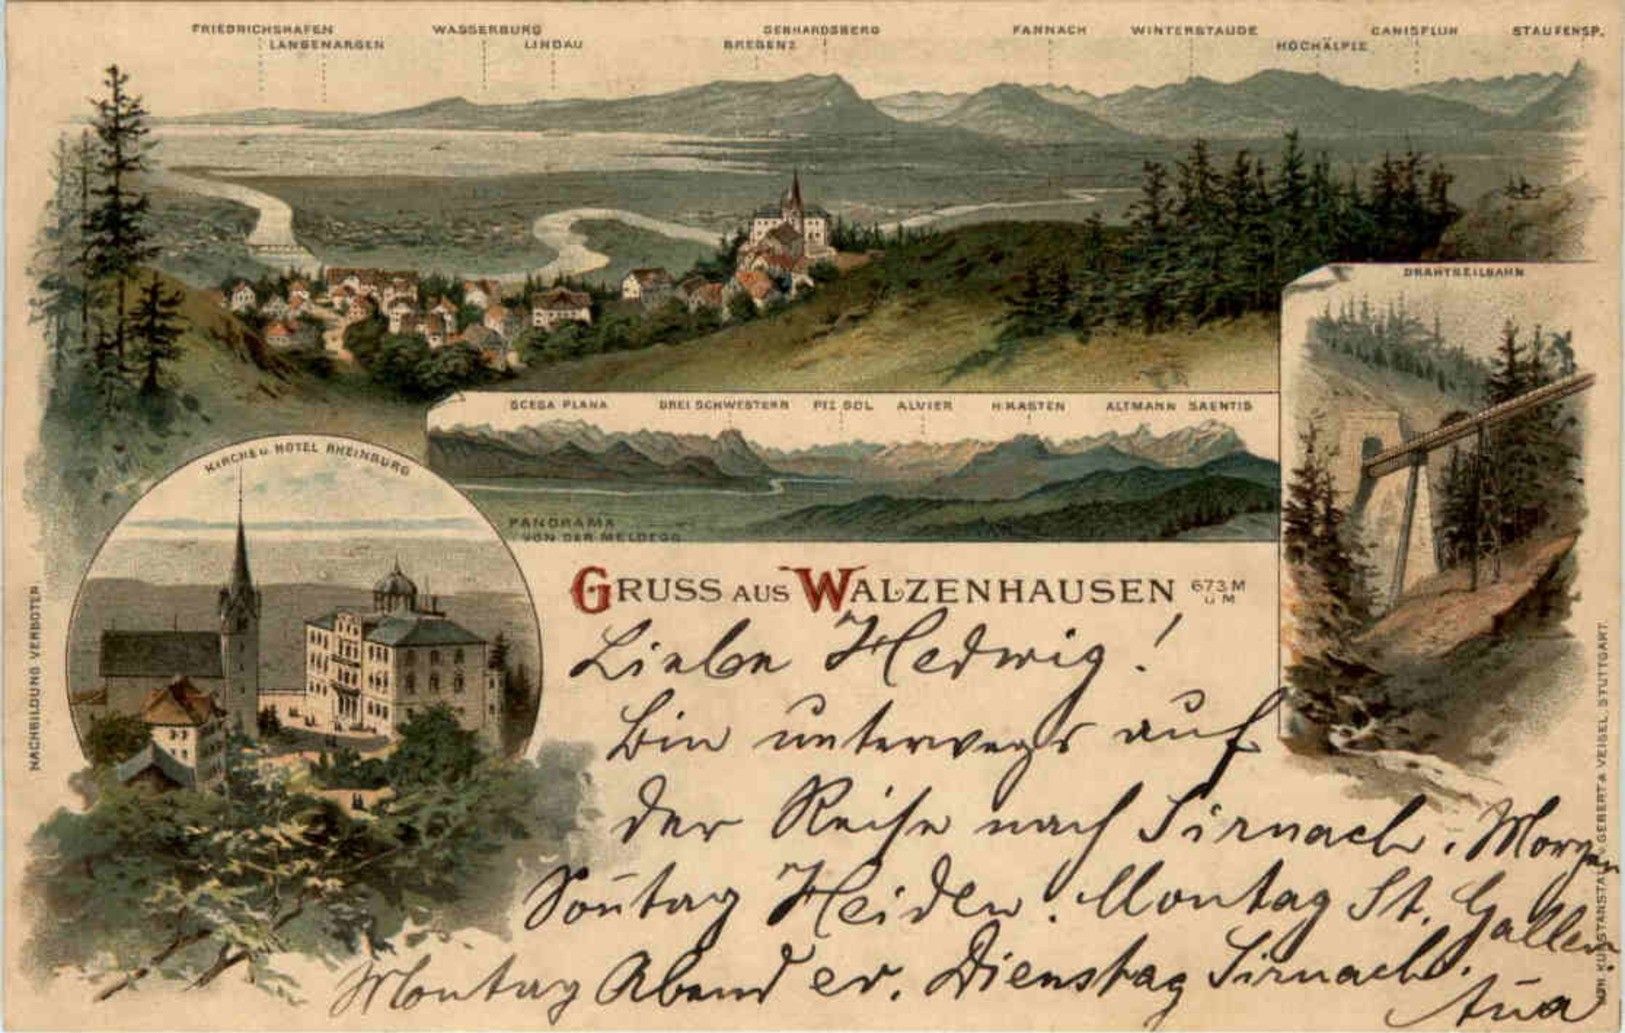 FRIEDRICHSHAFEN WASSERBURG GEBHARDSBERG FANNACH WINTERSTAUDE CANISFLUH STAUFENSP.
LANGENARGEN LINDAU BREGENZ HOCHÄLPLE
DRAHTSEILBAHN
SCESA PLANA DREI SCHWESTERN PIZ SOL ALVIER H.KASTEN ALTMANN SAENTIS
PANORAMA
VON DER MELDEGG
KIRCHE U. HOTEL RHEINBURG
GRUSS AUS WALZENHAUSEN 673 M
ü M
Liebe Hedwig!
Bin unterwegs auf
der Reise nach Sirnach. Morgen
Sonntag Heiden. Montag St. Gallen.
Montag Abend ev. Dienstag Sirnach.
NACHBILDUNG VERBOTEN
KUNSTANSTALT GERBERT & VEIGEL, STUTTGART.